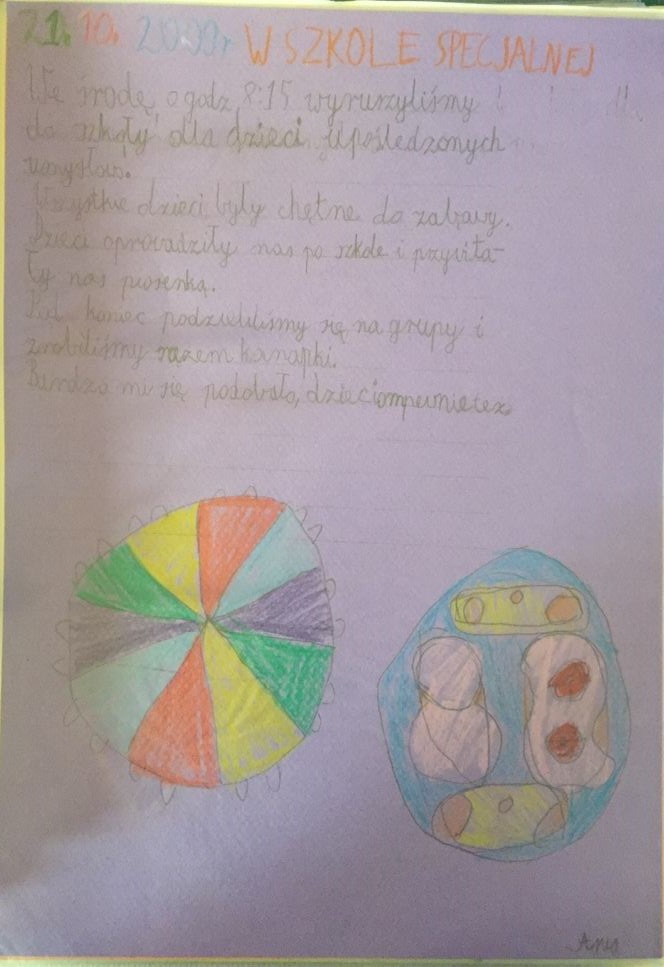 21. 10. 2009r W SZKOLE SPECJALNEJ
We środę o godz 8:15 wyruszyliśmy
do szkoły dla dzieci upośledzonych
umysłowo.
Wszystkie dzieci były chętne do zabawy.
Dzieci oprowadziły nas po szkole i przywita-
ły nas piosenką.
Pod koniec podzieliliśmy się na grupy i
zrobiliśmy razem kanapki.
Bardzo mi się podobało, dzieciom pewnie też.